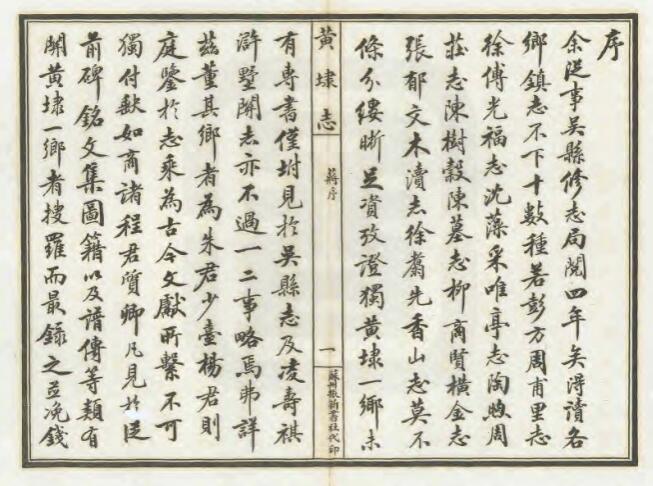 序
余從事吳縣修志局閱四年矣得讀各
鄉鎮志不下十數種若彭方周甫里志
徐傅光福志沈藻采唯亭志陶煦周
莊志陳樹穀陳墓志柳商賢橫金志
張郁文木瀆志徐翥先香山志莫不
條分縷晰足資攷證獨黃埭一鄉未
黃埭志
蔣序
一
蘇州振新書社代印
有專書僅坿見於吳縣志及凌壽祺
滸墅關志亦不過一二事略焉弗詳
茲董其鄉者為朱君少臺楊君則
庭鑒於志乘為古今文獻所繫不可
獨付缺如商諸程君質卿凡見於從
前碑銘文集圖籍以及譜傳等類有
關黃埭一鄉者搜羅而最錄之并浼錢